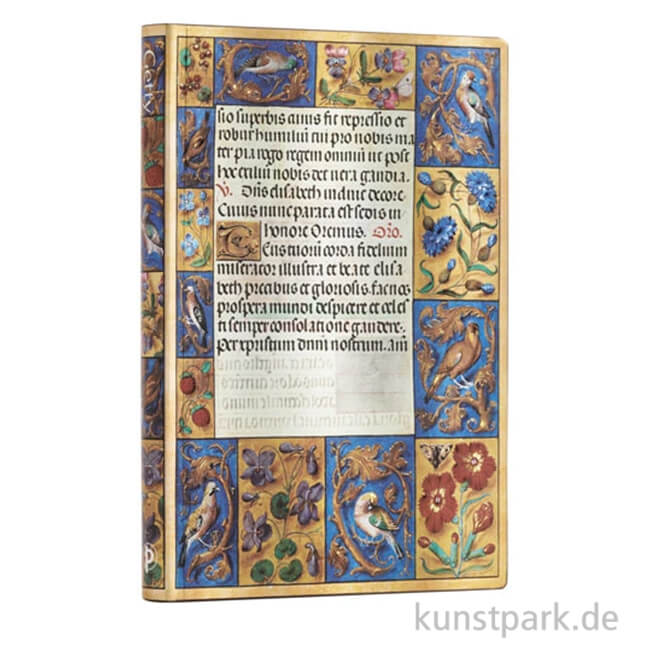 Getty
sio superbis amis fit repressio et
robur humiliū cui pro nobis ma
ter pia rogo regem omniū ut post
hec exiliū nobis det vera gaudia.
V. Ora elisabeth indiuo decore
Cuius nunc parata est sedis in
honore Oremus. Oro.
Tuorū corda fidelium
miserator illustra et beate elisa
beth precibus et gloriosis. fac nos
prospera mundi despicere et celes
ti semper consolatione gaudere.
Per xp̄istum dn̄m nostrum. am̄
kunstpark.de